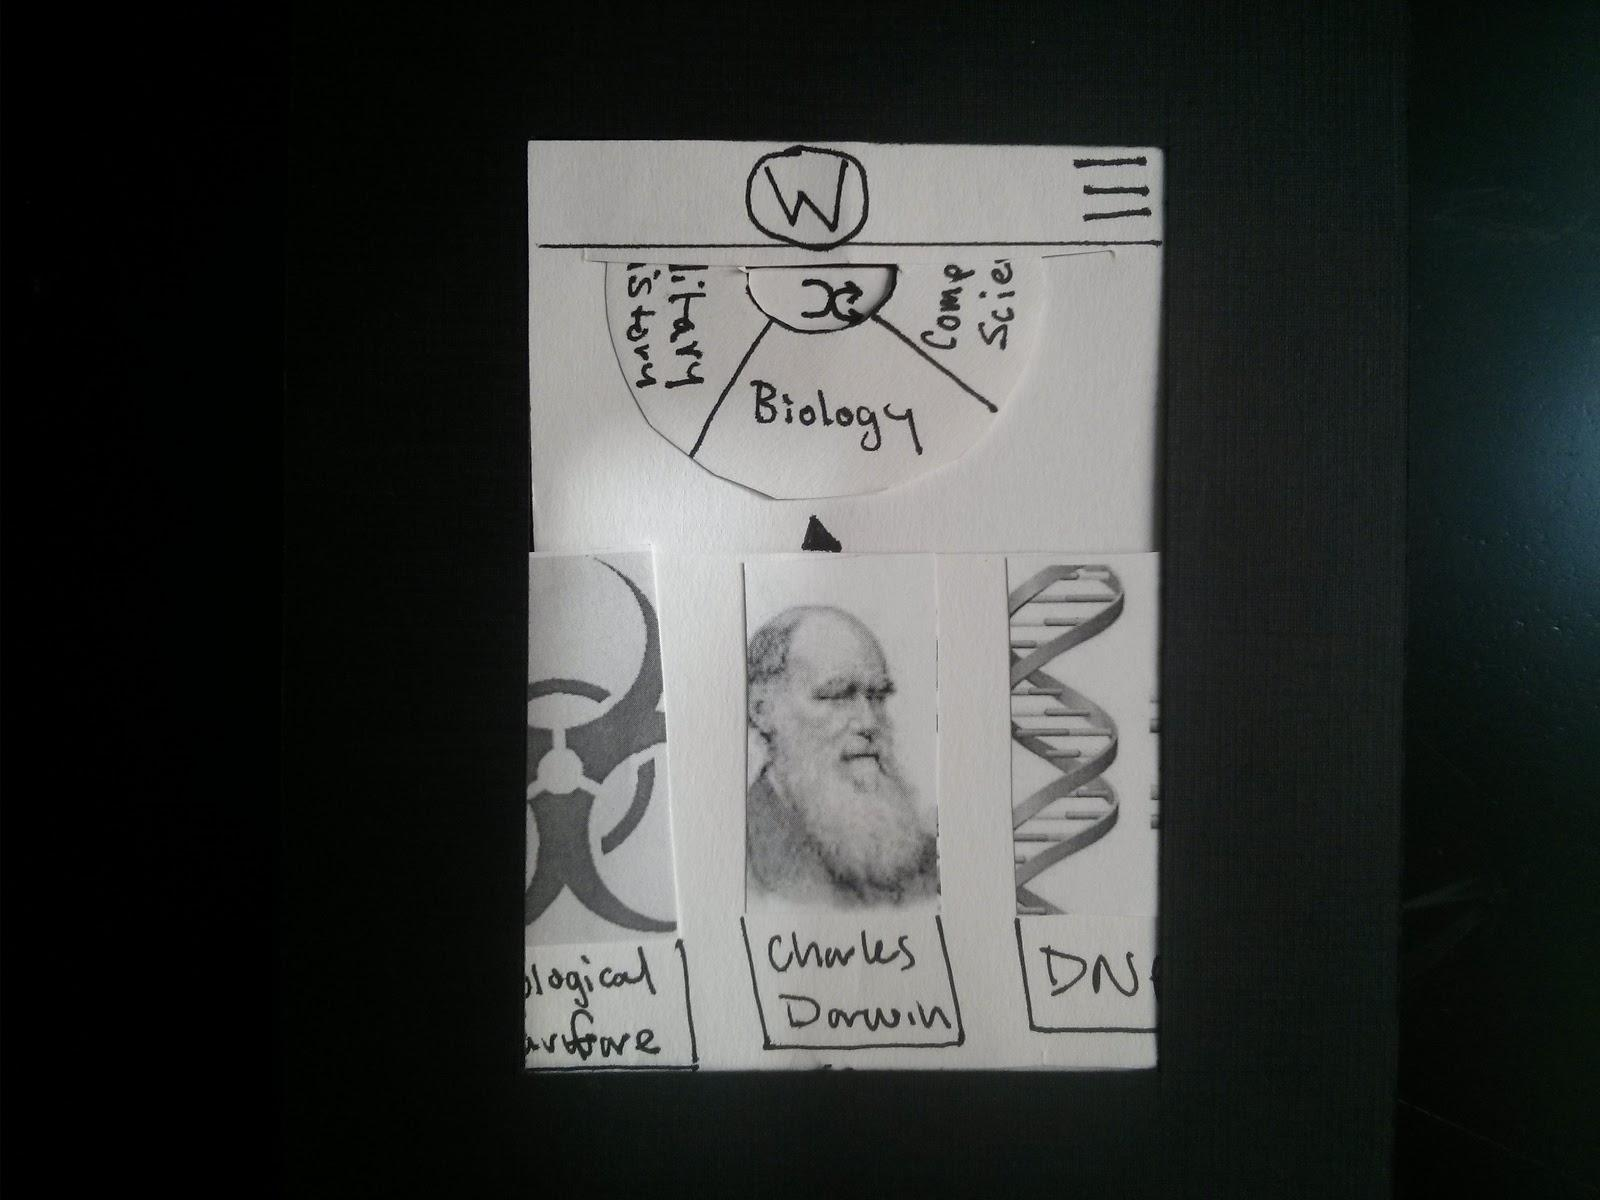 W
listary
istory
Biology
Comp
Scie
ological
arfare
Charles
Darwin
DN